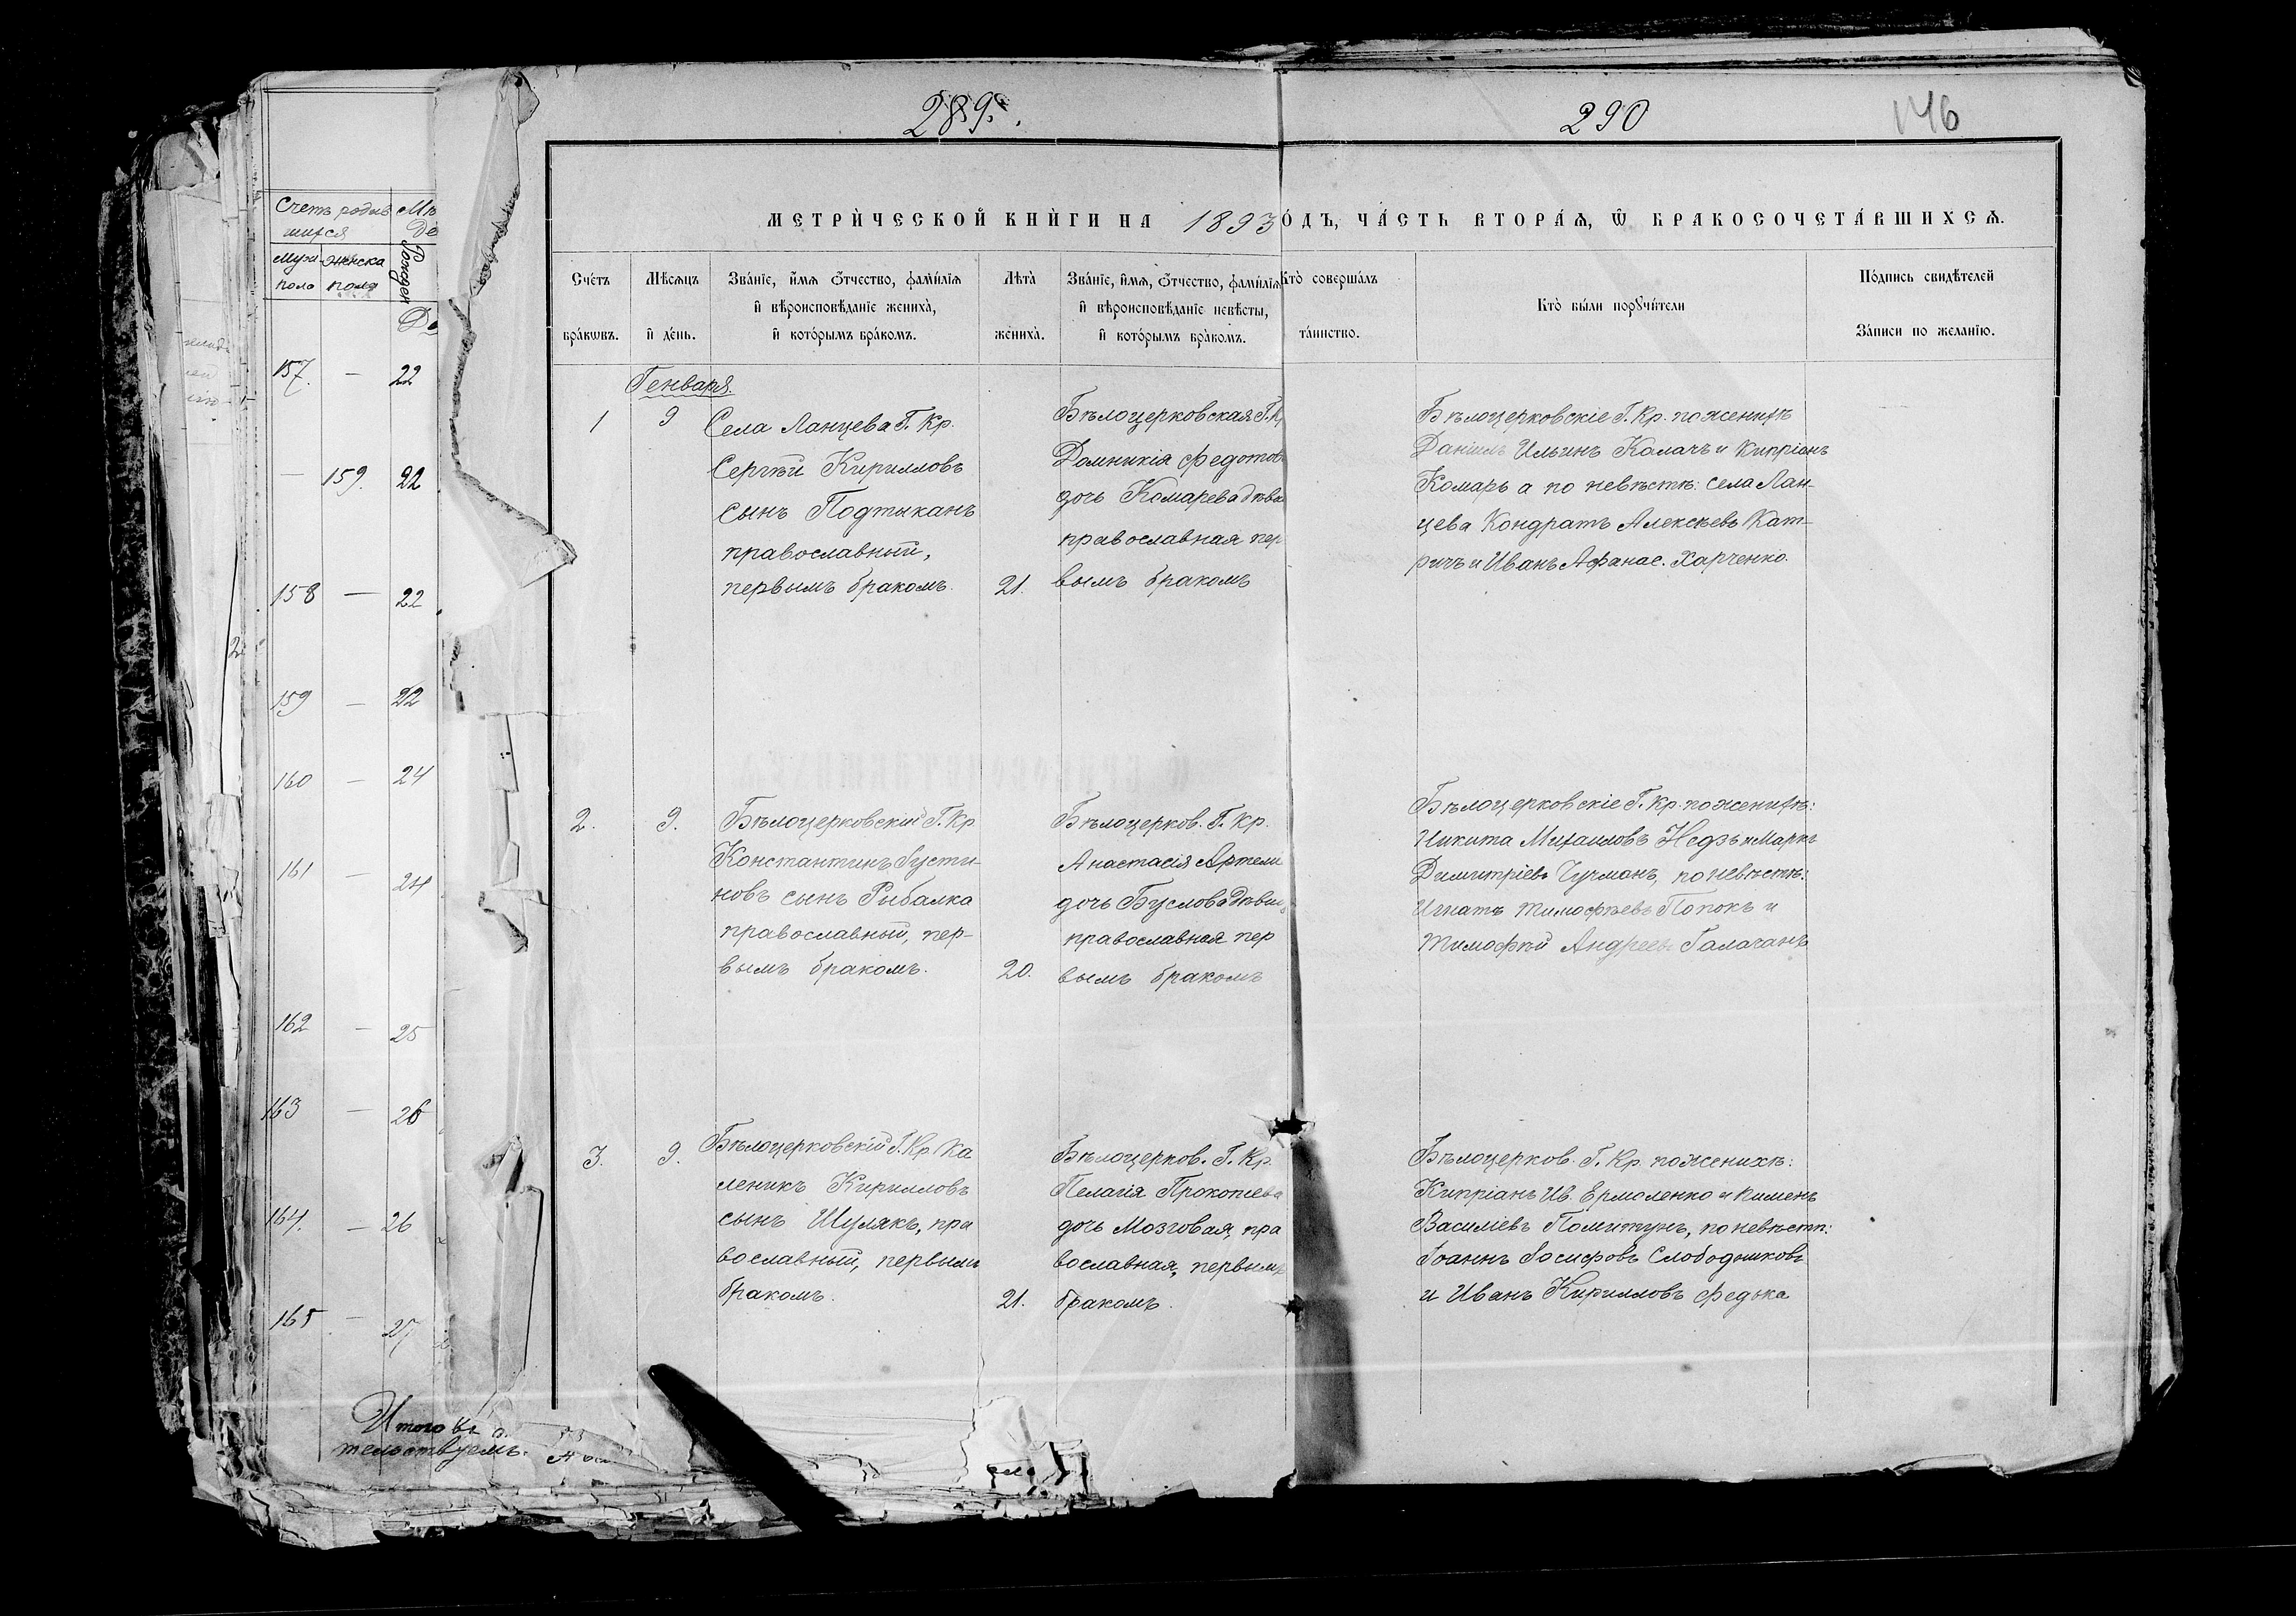 289.
290
146
МЕТРИ́ЧЕСКОЙ КНИ́ГИ НА 1893 ГО́ДЪ, ЧА́СТЬ ВТОРА́Я, Ѡ БРАКОСОЧЕТА́ВШИХСЯ.
Сче́тъ бра́кѡвъ.
Мѣ́сяцъ и де́нь.
Зва́нїе, и́мя ѻ́тчество, фами́лїя и вѣроисповѣ́данїе жениха̀, и кото́рымъ бра́комъ.
Лѣта̀ жениха̀.
Зва́нїе, и́мя, ѻ́тчество, фами́лїя и вѣроисповѣ́данїе невѣ́сты, и кото́рымъ бра́комъ.
Кто̀ соверша́лъ та́инство.
Кто̀ бы́ли порꙋчи́тели
По́дпись свидѣ́телей За́писи по жела́нїю.
Генваря.
1
9
Села Ланцева Г. Кр.
Сергѣй Кирилловъ
сынъ Подтыканъ
православный,
первымъ бракомъ.
21.
Бѣлоцерковская Г.
Домникія Федотов
дочь Комарева
православная пер
вымъ бракомъ
Бѣлоцерковскіе Г. Кр. по женихѣ
Даніилъ Ильинъ Калачъ и Кипріанъ
Комарь а по невѣстѣ: села Лан-
цева Кондратъ Алексѣевъ Кат-
ричъ и Иванъ Афанас. Харченко.
2.
9.
Бѣлоцерковскій Г. Кр.
Константинъ Густи-
новъ сынъ Рыбалка
православный, пер-
вымъ бракомъ.
20.
Бѣлоцерков. Г. Кр.
Анастасія Артеми
дочь Буслова
православная пер
вымъ бракомъ
Бѣлоцерковскіе Г. Кр. по женихѣ:
Никита Михаиловъ и Маркъ
Димитріевъ Чучманъ, по невѣстѣ:
Игнатъ Тимофѣевъ Попокъ и
Тимофѣй Андреевъ Галаганъ
3.
9.
Бѣлоцерковскій Г. Кр. Ка
леникъ Кирилловъ
сынъ Шулякъ, пра
вославный, первымъ
бракомъ.
21.
Бѣлоцерков. Г. Кр.
Пелагія Прокопіева
дочь Мозговая, пра
вославная, первымъ
бракомъ.
Бѣлоцерков. Г. Кр. по женихѣ:
Кипріанъ Ив. Ермоленко и Пименъ
Василіевъ Помитунъ, по невѣстѣ:
Іоаннъ Іосифовъ Слободяниковъ
и Иванъ Кирилловъ Федька
Счетъ родив
шихся
Муж. Женска
пола пола
Рожден
157. — 22
— 159. 22
158 — 22
159 — 22
160 — 24
161 — 24
162 — 25
163 — 26
164. — 26
165 — 27
Итого
тельствуемъ.